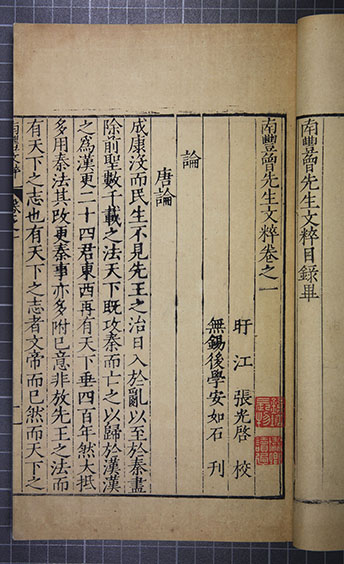 南豐曾先生文粹目錄畢
南豐曾先生文粹卷之一
盱江 張光啓 校
無錫後學安如石 刊
論
唐論
成康沒而民生不見先王之治日入於亂以至於秦盡
除前聖數千載之法天下既攻秦而亡之以歸於漢漢
之爲漢更二十四君東西再有天下垂四百年然大抵
多用秦法其改更秦事亦多附己意非放先王之法而
有天下之志也有天下之志者文帝而已然而天下之